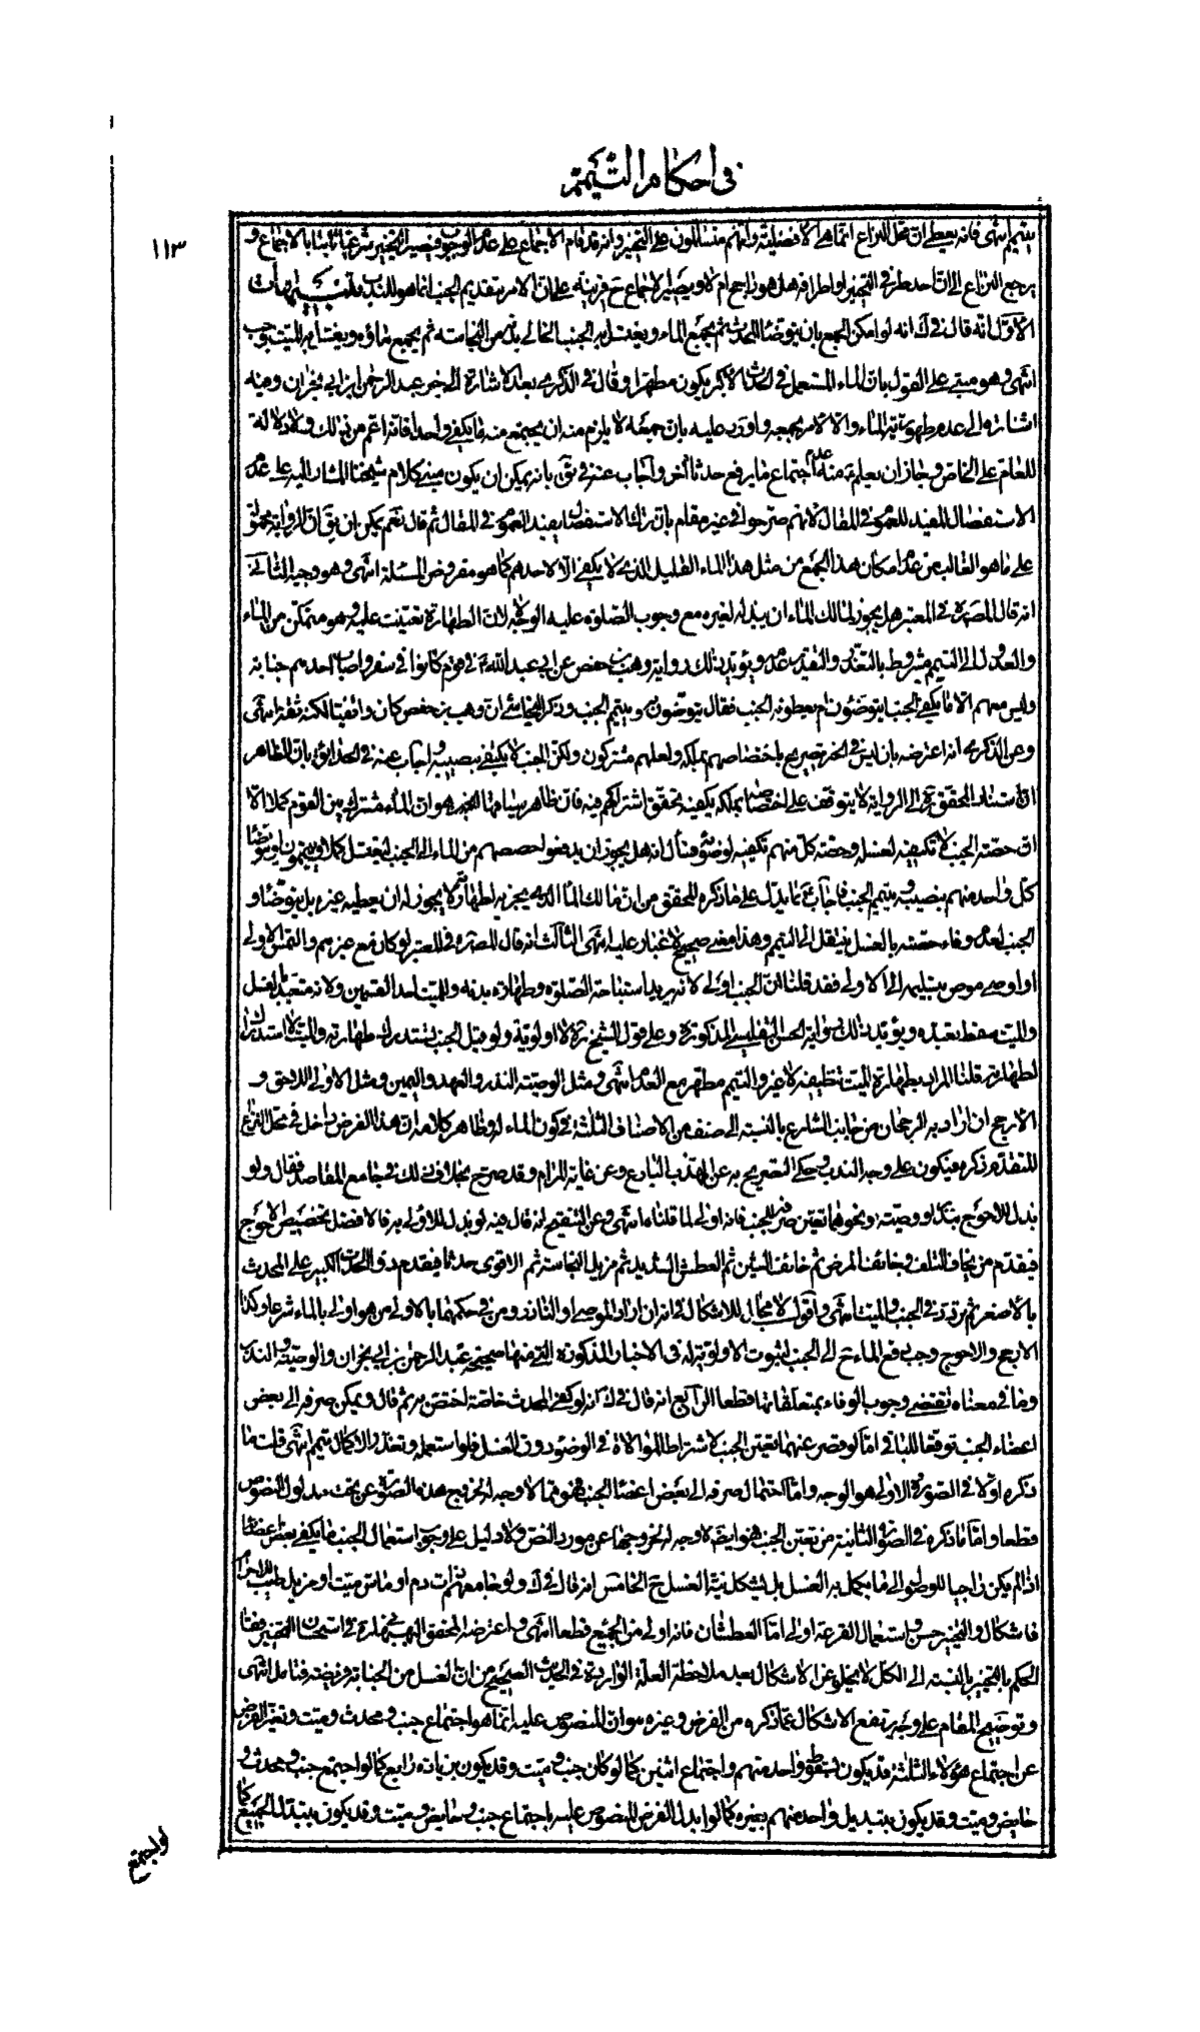 في احكام التيمم
١١٣
يتيمم انتهى فانه يعطى ان محل النزاع انما هى الافضلية وانهم متسالمون على التخيير وانه قد قام الاجماع على عدم الوجوب فيصير التخيير شرعيا ثابتا بالاجماع و
يرجع النزاع الى ان احد طرفى التخيير او اطرافه هل هو راجح ام لا ويصير الاجماع ح قرينة على ان الامر بتقديم الجنب انما هو للندب تنبيهات
الاوّل انه قال فى ك انه لو امكن الجمع بان يتوضأ المحدث ثم يجمع الماء ويغتسل به الجنب الخالى بدنه من النجاسة ثم يجمع ماؤه ويغسل به الميت وجب
انتهى وهو مبنى على القول بان الماء المستعمل فى الحدث الاكبر يكون مطهرا وقال فى الذكرى بعد الاشارة الى خبر عبد الرحمن بن ابى نجران وفيه
اشارة الى عدم طهورية الماء والا لامر بجمعه واورد عليه بان جمعه لا يلزم منه ان يجتمع منه ما يكفى واحدا فانه اعم من ذلك ولا دلالة
للعام على الخاص وجاز ان يعلم ع منه عدم اجتماع ما يرفع حدثا اخر واجاب عنه فى ئق بانه يمكن ان يكون مبنى كلام شيخنا المشار اليه على عدم
الاستفصال المفيد للعموم فى المقال لانهم صرحوا فى غير مقام بان ترك الاستفصال يفيد العموم فى المقال ثم قال نعم يمكن ان يق ان الرواية محمولة
على ما هو الغالب من عدم امكان هذا الجمع من مثل هذا الماء القليل الذى لا يكفى الا لاحدهم كما هو مفروض المسئلة انتهى وهو وجيه الثانى
انه قال المصره فى المعتبر هل يجوز لمالك الماء ان يبذله لغيره مع وجوب الصلوة عليه الوجه لا لان الطهارة تعينت عليه وهو متمكن من الماء
والعدول الى التيمم مشروط بالتعذر والتقدير عدمه ويؤيد ذلك رواية وهب بن حفص عن ابى عبد الله ع فى قوم كانوا فى سفر واصاب احدهم جنابة
وليس معهم الا ما يكفى الجنب ايتوضئون ام يعطونه الجنب فقال يتوضئون ويتيمم الجنب وذكر النجاشى ان وهب بن حفص كان واقفيا لكنه ثقة انتهى
وعن الذكرى انه اعترضه بان ليس فى الخبر تصريح باختصاصهم بملكه ولعلهم مشتركون ولكن الجنب لا يكتفى بنصيبه واجاب عنه فى الحدائق بان الظاهر
ان استناد المحقق ره الى الرواية لا يتوقف على اختصاصهم بملكه يكفيه تحقق اشتراكهم فيه فان ظاهر سياق الخبر هو ان الماء مشترك بين القوم كملا الا
ان حصة الجنب لا تكفيه لغسله وحصة كل منهم تكفيه لوضوئه فسأل انه هل يجوز ان يدفعوا حصصهم من الماء الى الجنب ليغتسل كملا ويتيممون او يتوضأ
كل واحد منهم بنصيبه ويتيمم الجنب فاجاب ع بما يدل على ما ذكره المحقق من ان مالك الماء الذى يجزيه لطهارته لا يجوز له ان يعطيه غيره بل يتوضأ و
الجنب لعدم وفاء حصته بالغسل ينتقل الى التيمم وهذا معنى صحيح لا غبار عليه انتهى الثالث انه قال المصره فى المعتبر لو كان مع غيرهم والتمس الاولى
او اوصى موص بتسليمه الى الاولى فقد قلنا ان الجنب اولى لانه يريد استباحة الصلوة وطهارة بدنه وللميت احد القسمين ولانه متعبد بالغسل
والميت سقط تعبده ويؤيد ذلك رواية الحسن التفليسى المذكورة وعلى قول الشيخ ره لا اولوية ولو قيل الجنب يستدرك طهارته والميت لا استدراك
لطهارته قلنا المراد بطهارة الميت تنظيفه لا غير والتيمم مطهر مع العدم انتهى ومثل الوصية النذر والعهد واليمين ومثل الاولى الاحق و
الارجح ان اراد به الرجحان من جانب الشارع بالنسبة الى صنف من الاصناف الثلثة فى كون الماء له وظاهر كلامه ان هذا الفرض داخل فى محل النزاع
المتقدم ذكره فيكون على وجه الندب وحكى التصريح به عن المهذب البارع وعن غاية المرام وقد صرح بخلاف ذلك فى جامع المقاصد فقال ولو
بذل للاحوج بنذر او وصية ونحوهما تعين صرفه للجنب فانه اولى لما قلناه انتهى وعن التنقيح انه قال فيه لو بذل للاولى به فالافضل تخصيص الاحوج
فيقدم من يخاف التلف فخائف المرض ثم خائف الشين ثم العطش الشديد ثم مزيل النجاسة ثم الاقوى حدثا فيقدم ذو الحدث الكبير على المحدث
بالاصغر ثم تردد فى الجنب والميت انتهى واقول لا مجال للاشكال فى انه ان اراد الموصى او الناذر ومن فى حكمهما بالاولى من هو اولى بالماء شرعا وكذا
الارجح والاحوج وجب دفع الماء ح الى الجنب لثبوت الاولوية له فى الاخبار المذكورة التى منها صحيحة عبد الرحمن بن ابى نجران والوصية والنذر
وما فى معناه تقتضى وجوب الوفاء بمتعلقاتها قطعا الرابع انه قال فى ك انه لو كفى المحدث خاصة اختص به ثم قال ويمكن صرفه الى بعض
اعضاء الجنب توقعا للباقى اما لو قصر عنهما تعين الجنب لاشتراط الموالاة فى الوضوء دون الغسل فلو استعمله وتعذر الاكمال تيمم انتهى قلت ما
ذكره اولا فى الصورة الاولى هو الوجه واما احتمال صرفه الى بعض اعضاء الجنب فهو مما لا وجه له لخروج هذه الصورة عن تحت مدلول النصوص
قطعا واما ما ذكره فى الصورة الثانية من تعين الجنب فهو ايضا لا وجه له لخروجها عن مورد النص ولا دليل على وجوب استعمال الجنب ما يكفى بعض اعضائه
اذا لم يكن راجيا للوصول الى ما يكمل به الغسل بل يشكل نية الغسل ح الخامس انه قال فى ك ولو جامعهم ذات دم او ماس ميت او مزيل طيب للاحرام
فاشكال والتخيير حسن واستعمال القرعة اولى اما العطشان فانه اولى من الجميع قطعا انتهى واعترضه المحقق البهبهانى ره فى استحسان التخيير فقال
الحكم بالتخيير بالنسبة الى الكل لا يخلو عن الاشكال بعد ملاحظة العلة الواردة فى الحديث الصحيح من ان الغسل من الجنابة فريضة فتامل انتهى
وتوضيح المقام على وجه يرتفع الاشكال عما ذكره من الفرض وغيره هو ان المنصوص عليه انما هو اجتماع جنب ومحدث وميت وتغير الفرض
عن اجتماع هؤلاء الثلثة قد يكون بسقوط واحد منهم واجتماع اثنين كما لو كان جنب وميت وقد يكون بزيادة رابع كما لو اجتمع جنب ومحدث و
حايض وميت وقد يكون بتبديل واحد منهم بغيره كما لو ابدل الفرض المنصوص عليه باجتماع جنب وحايض وميت وقد يكون بتبدل الجميع كما
لو اجتمع